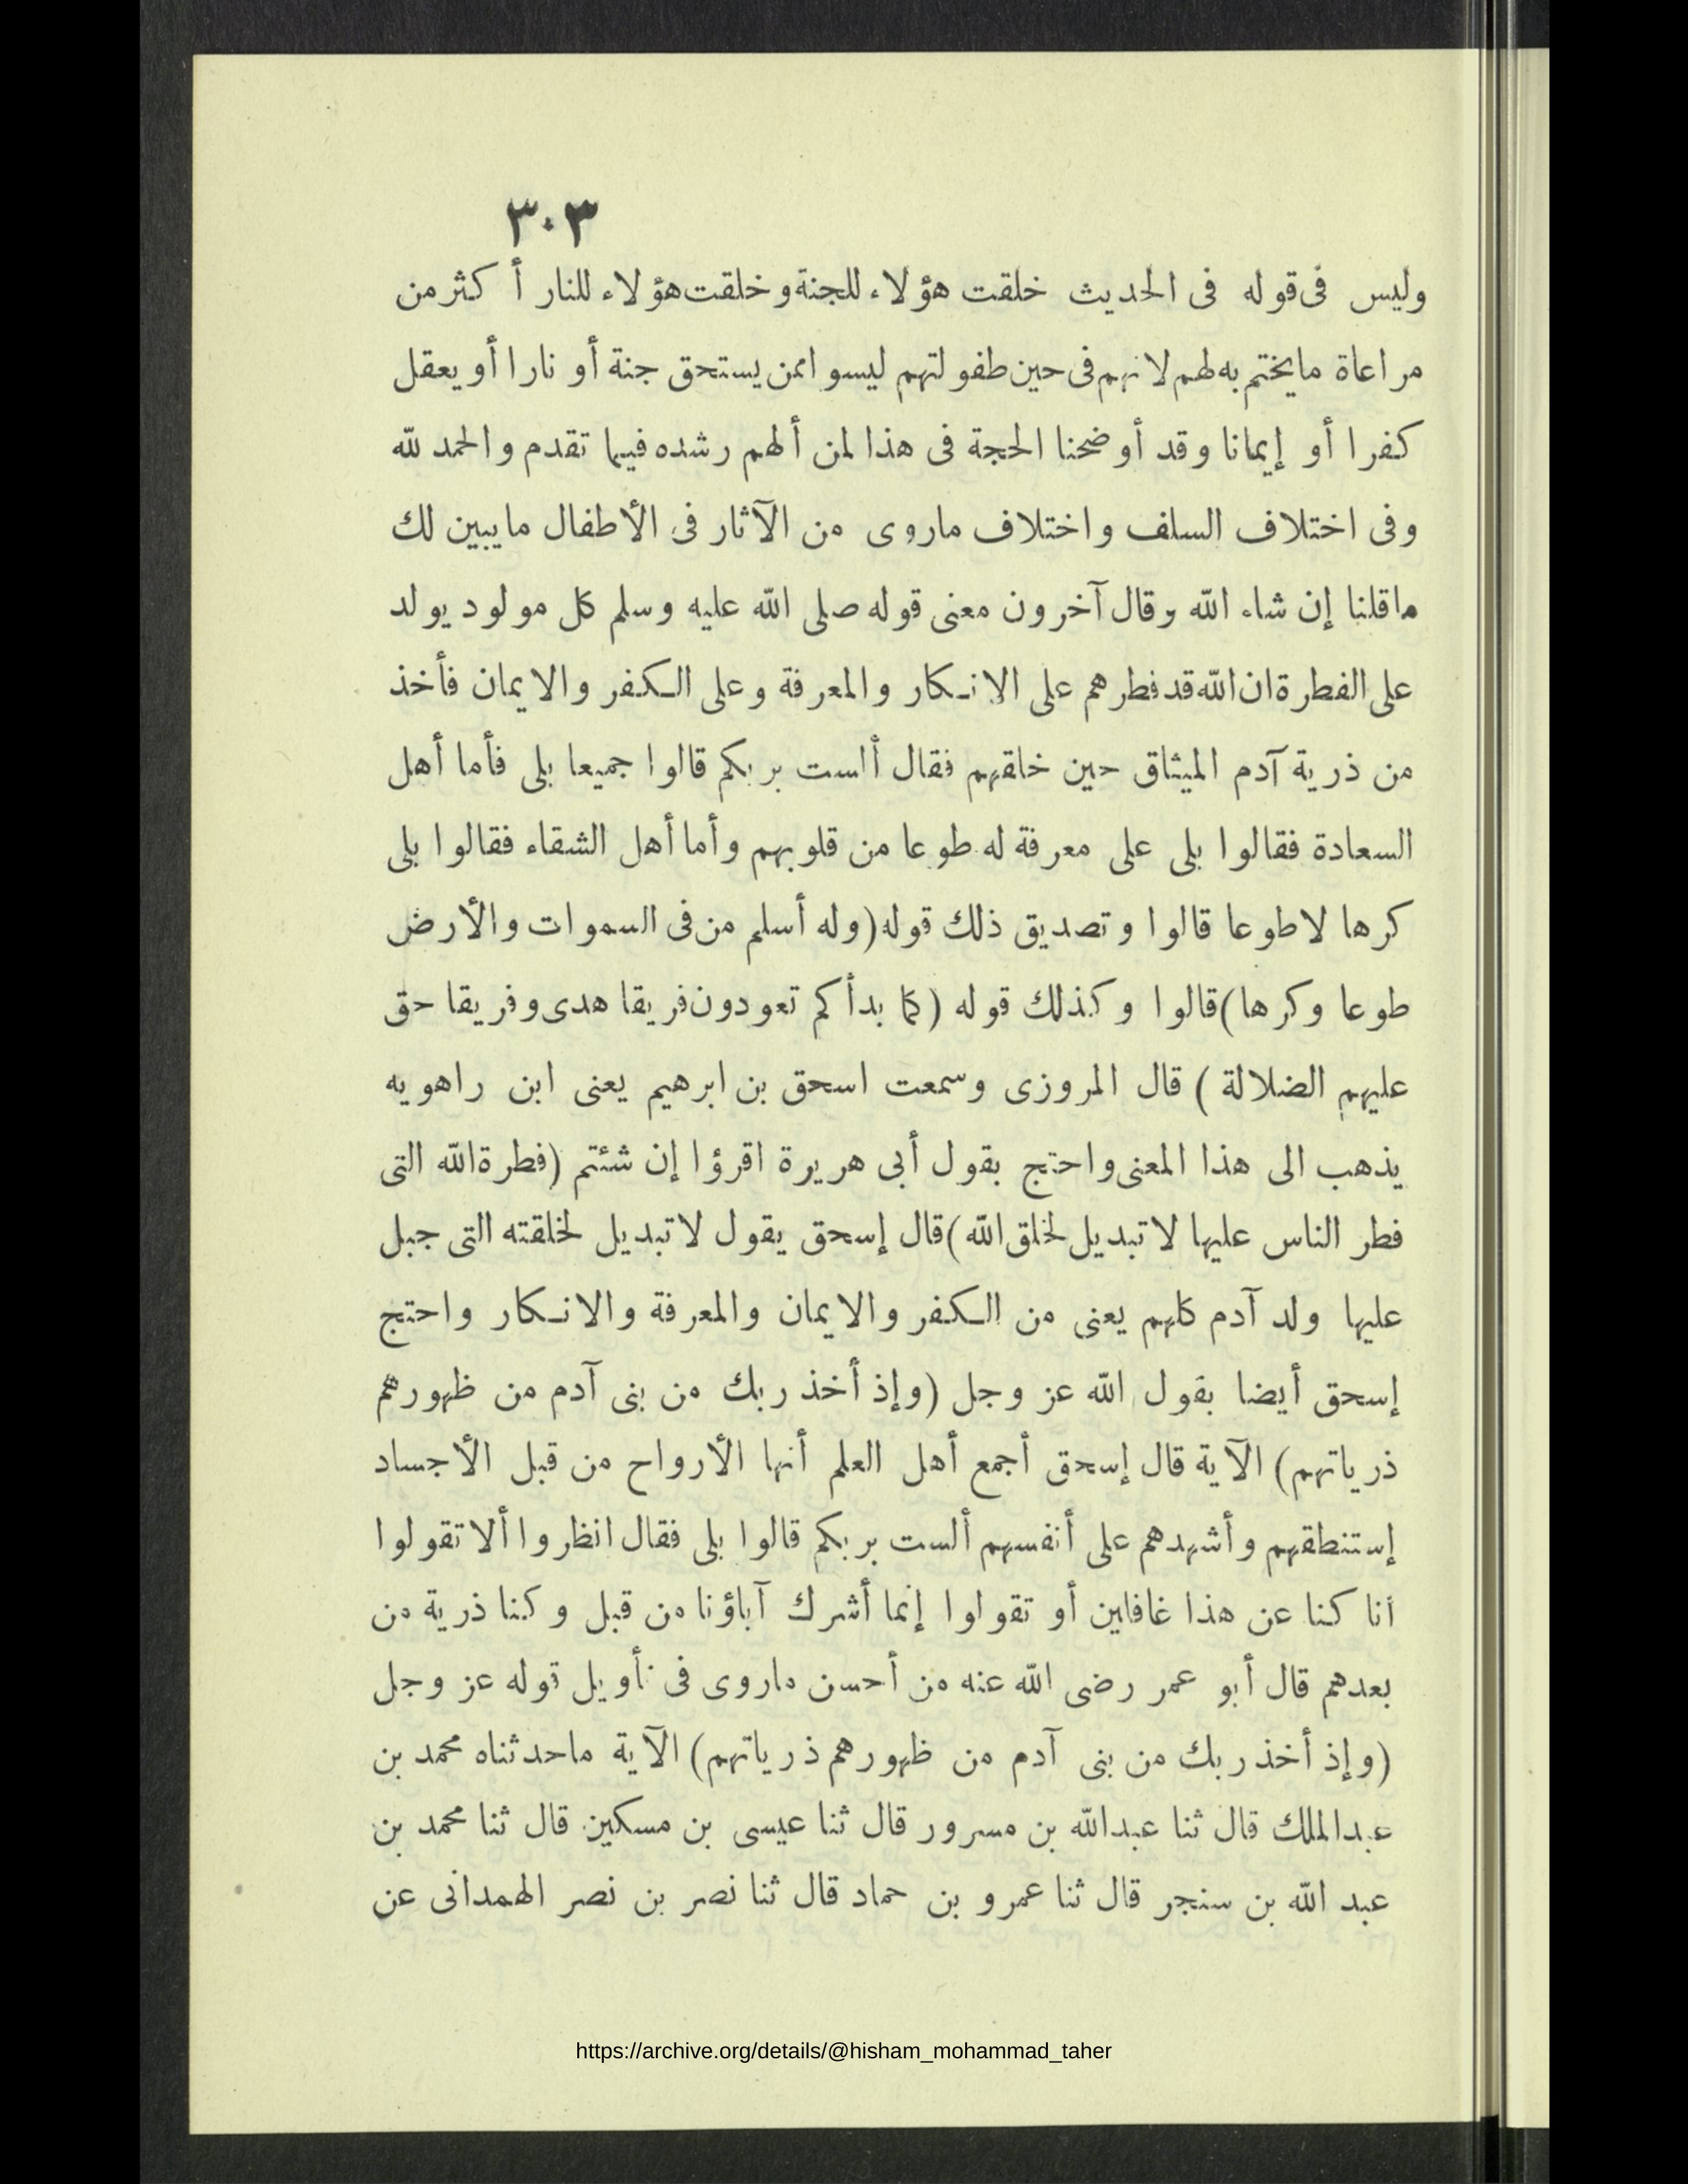 ٣٠٣
وليس فى قوله فى الحديث خلقت هؤلاء للجنة وخلقت هؤلاء للنار أكثر من
مراعاة ما يختم به لهم لانهم فى حين طفولتهم ليسوا ممن يستحق جنة أو نارا أو يعقل
كفرا أو إيمانا وقد أوضحنا الحجة فى هذا لمن ألهم رشده فيما تقدم والحمد لله
وفى اختلاف السلف واختلاف ماروى من الآثار فى الأطفال ما يبين لك
ماقلنا إن شاء الله وقال آخرون معنى قوله صلى الله عليه وسلم كل مولود يولد
على الفطرة ان الله قد فطرهم على الانكار والمعرفة وعلى الكفر والايمان فأخذ
من ذرية آدم الميثاق حين خلقهم فقال ألست بربكم قالوا جميعا بلى فأما أهل
السعادة فقالوا بلى على معرفة له طوعا من قلوبهم وأما أهل الشقاء فقالوا بلى
كرها لاطوعا قالوا وتصديق ذلك قوله (وله أسلم من فى السموات والأرض
طوعا وكرها) قالوا وكذلك قوله (كما بدأكم تعودون فريقا هدى وفريقا حق
عليهم الضلالة) قال المروزى وسمعت اسحق بن ابرهيم يعنى ابن راهويه
يذهب الى هذا المعنى واحتج بقول أبى هريرة اقرؤا إن شئتم (فطرة الله التى
فطر الناس عليها لاتبديل لخلق الله) قال إسحق يقول لاتبديل لخلقته التى جبل
عليها ولد آدم كلهم يعنى من الكفر والايمان والمعرفة والانكار واحتج
إسحق أيضا بقول الله عز وجل (وإذ أخذ ربك من بنى آدم من ظهورهم
ذرياتهم) الآية قال إسحق أجمع أهل العلم أنها الأرواح من قبل الأجساد
إستنطقهم وأشهدهم على أنفسهم ألست بربكم قالوا بلى فقال انظروا ألا تقولوا
أنا كنا عن هذا غافلين أو تقولوا إنما أشرك آباؤنا من قبل وكنا ذرية من
بعدهم قال أبو عمر رضى الله عنه من أحسن ماروى فى تأويل قوله عز وجل
(وإذ أخذ ربك من بنى آدم من ظهورهم ذرياتهم) الآية ماحدثناه محمد بن
عبدالملك قال ثنا عبدالله بن مسرور قال ثنا عيسى بن مسكين قال ثنا محمد بن
عبد الله بن سنجر قال ثنا عمرو بن حماد قال ثنا نصر بن نصر الهمدانى عن
https://archive.org/details/@hisham_mohammad_taher